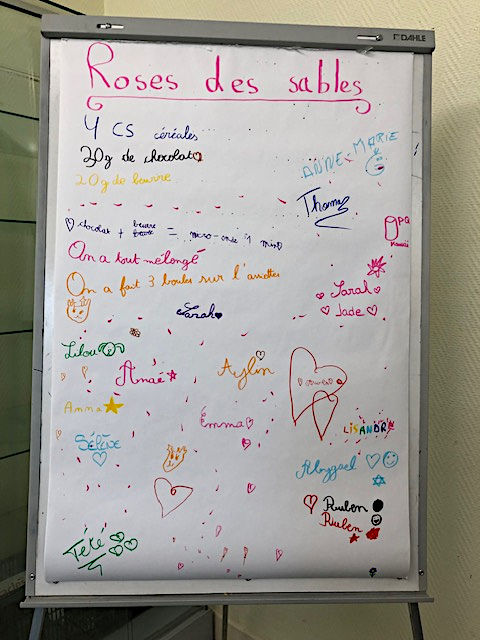 DAHLE
Roses des sables
4 CS céréales
20g de chocolat
20g de beurre
ANNE-MARIE
Thomas
chocolat + beurre = micro-onde 1 min
On a tout mélangé
On a fait 3 boules sur l'assiettes
Sarah
Jade
Sarah
Lilou
Anaé
Aylin
Anna
Emma
LISANDR
Sélène
Abygael
Ruben
Ruben
Tété